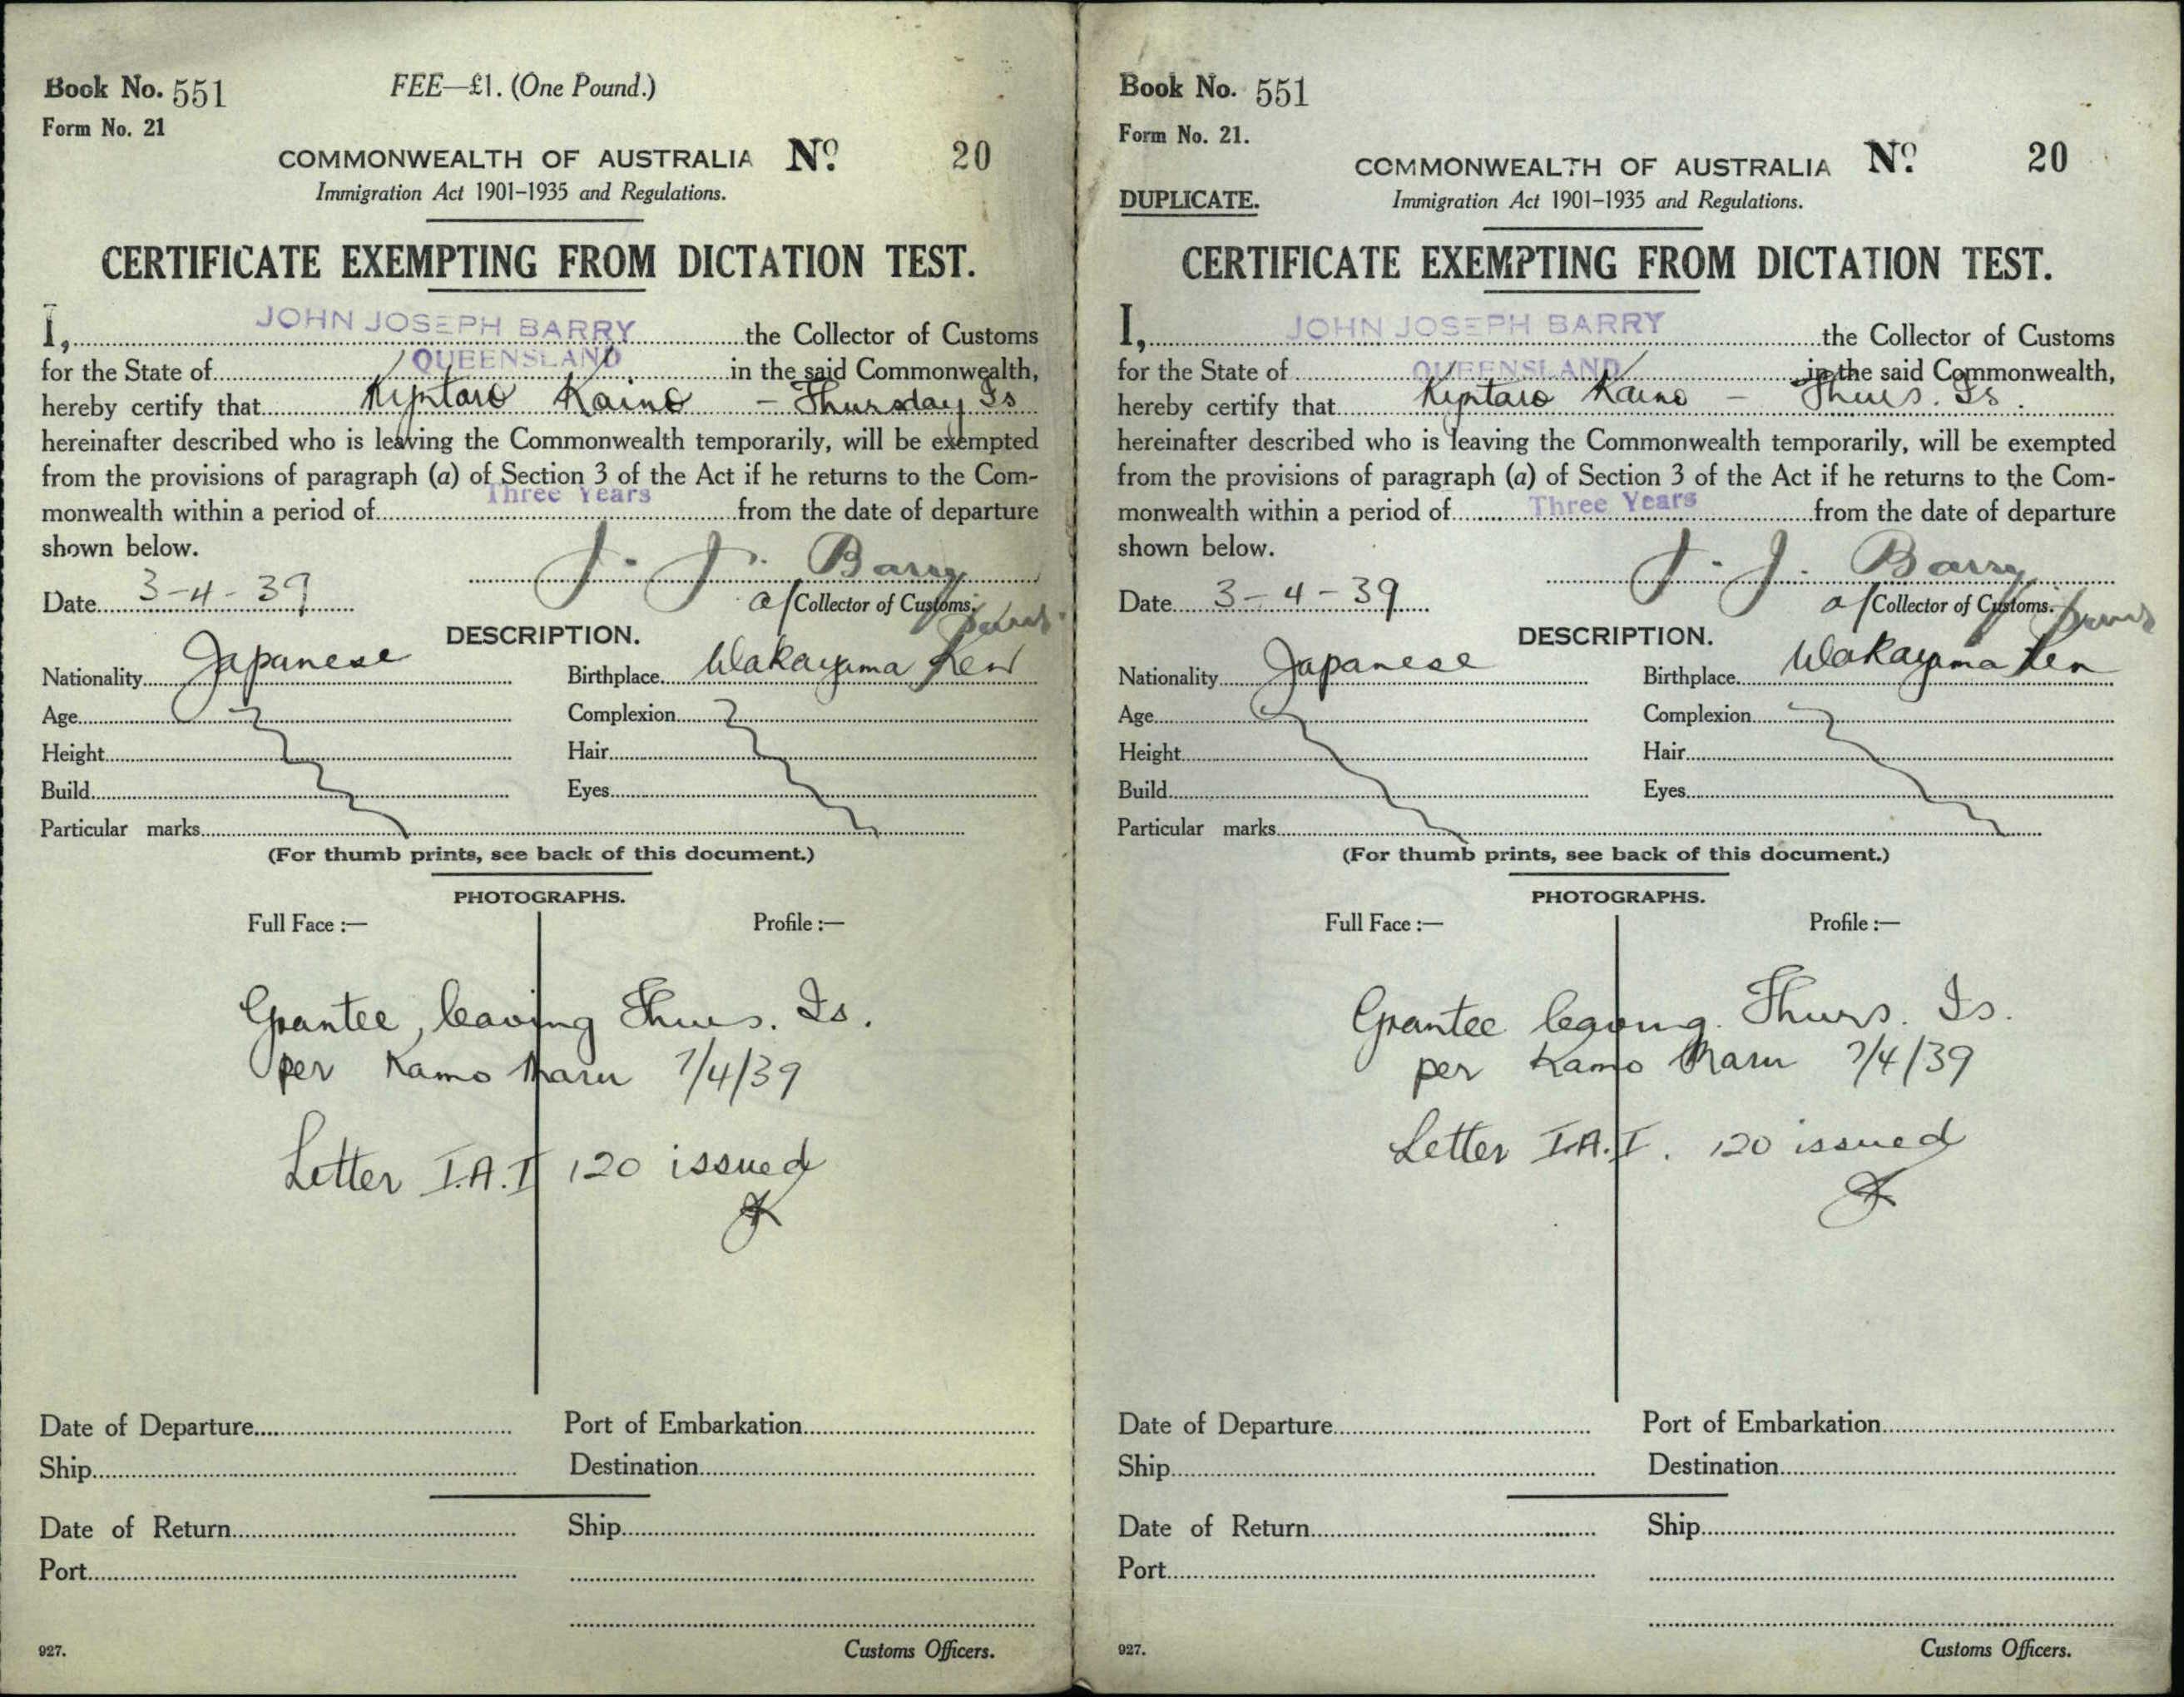 Book No. 551
FEE—£1. (One Pound.)
Form No. 21
COMMONWEALTH OF AUSTRALIA No. 20
Immigration Act 1901–1935 and Regulations.
CERTIFICATE EXEMPTING FROM DICTATION TEST.
I, JOHN JOSEPH BARRY the Collector of Customs
for the State of QUEENSLAND in the said Commonwealth,
hereby certify that Kaino – Thursday Is
hereinafter described who is leaving the Commonwealth temporarily, will be exempted
from the provisions of paragraph (a) of Section 3 of the Act if he returns to the Com-
monwealth within a period of Three Years from the date of departure
shown below.
J. J. Barry
Date 3-4-39
a/Collector of Customs.
DESCRIPTION.
Nationality Japanese Birthplace Wakayama Ken
Age Complexion
Height Hair
Build Eyes
Particular marks
(For thumb prints, see back of this document.)
PHOTOGRAPHS.
Full Face :— Profile :—
Grantee, leaving Thurs. Is.
per Kamo Maru 7/4/39
Letter I.A.I 120 issued
Date of Departure Port of Embarkation
Ship Destination
Date of Return Ship
Port
927. Customs Officers.
Book No. 551
Form No. 21.
COMMONWEALTH OF AUSTRALIA No. 20
DUPLICATE. Immigration Act 1901–1935 and Regulations.
CERTIFICATE EXEMPTING FROM DICTATION TEST.
I, JOHN JOSEPH BARRY the Collector of Customs
for the State of QUEENSLAND in the said Commonwealth,
hereby certify that Kaino – Thurs. Is.
hereinafter described who is leaving the Commonwealth temporarily, will be exempted
from the provisions of paragraph (a) of Section 3 of the Act if he returns to the Com-
monwealth within a period of Three Years from the date of departure
shown below.
J. J. Barry
Date 3-4-39
a/Collector of Customs.
DESCRIPTION.
Nationality Japanese Birthplace Wakayama Ken
Age Complexion
Height Hair
Build Eyes
Particular marks
(For thumb prints, see back of this document.)
PHOTOGRAPHS.
Full Face :— Profile :—
Grantee leaving Thurs. Is.
per Kamo Maru 7/4/39
Letter I.A.I. 120 issued
Date of Departure Port of Embarkation
Ship Destination
Date of Return Ship
Port
927. Customs Officers.